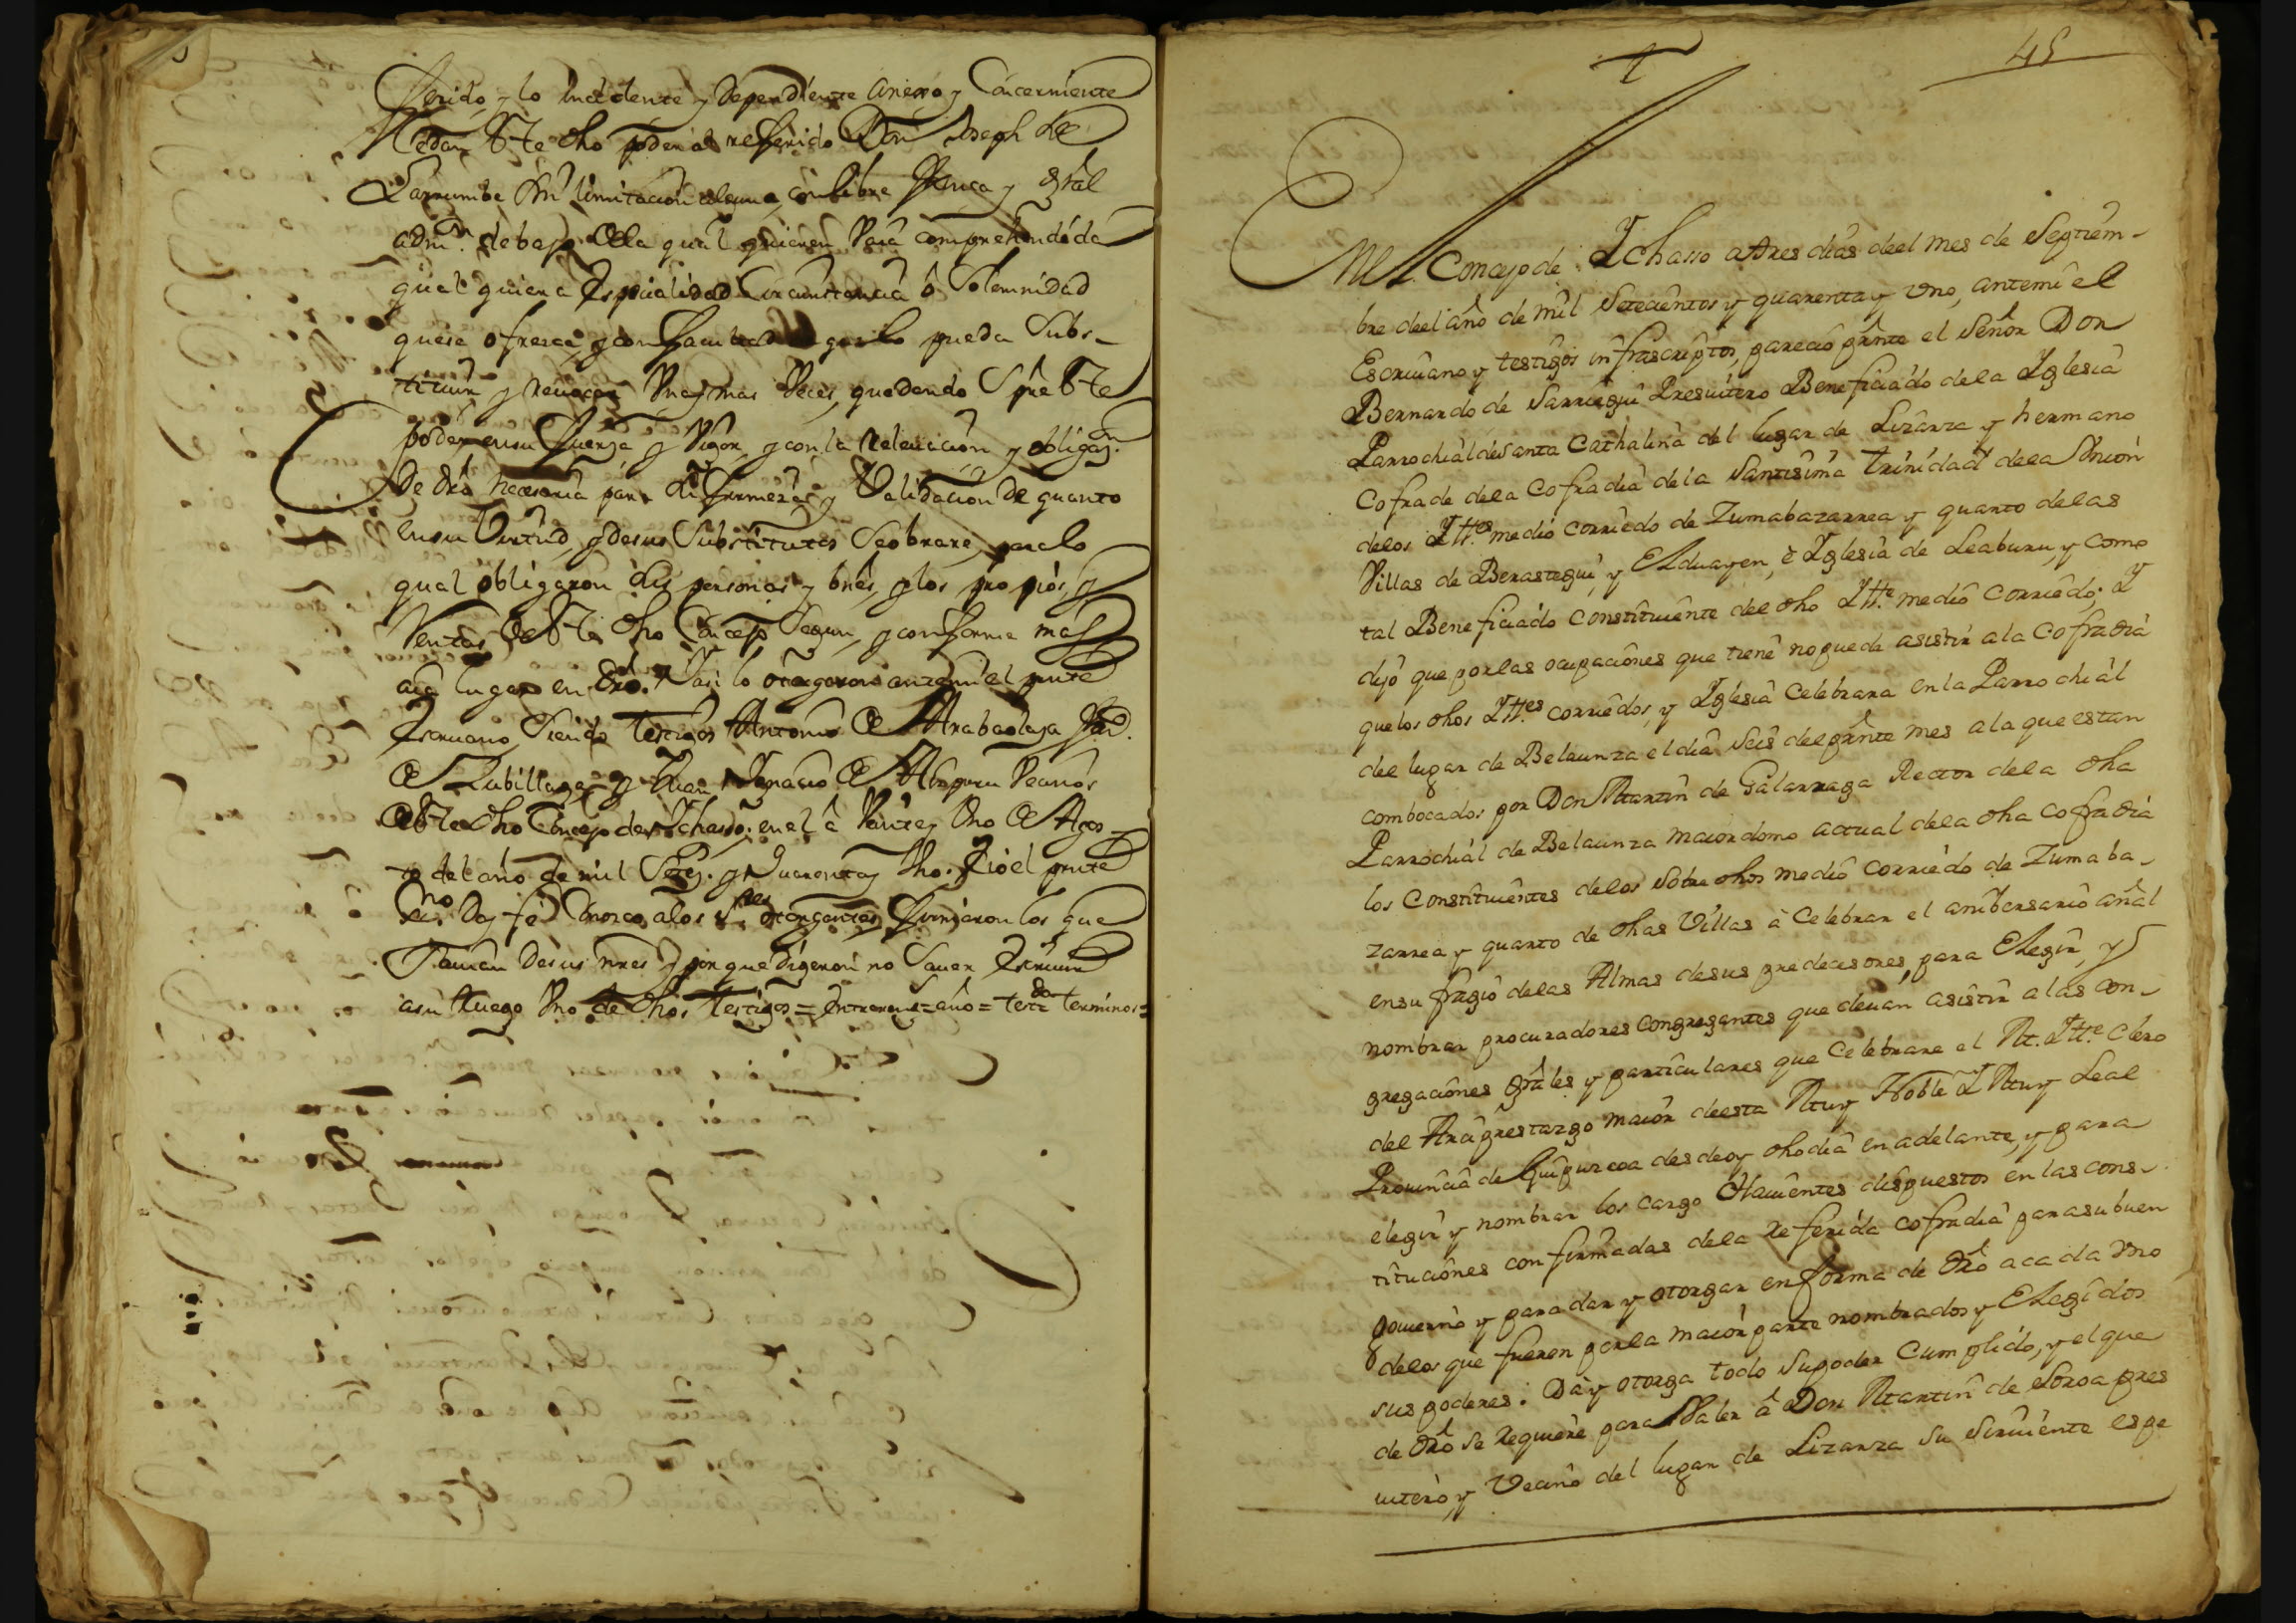 ferido, y lo incidente y dependiente anexo y concerniente
le dan este dho poder al referido Don Joseph de
Larrumbe sin limitacion alguna, con libre franca y gral
admon. debajo de la qual quieren vaia comprehendida
qual quiera espicialidad circunstancia ô solemnidad
quese ofrezca, y con facultad de que lo pueda Subs-
tituir y revocar una y mas veces, quedando Spre este
poder en su fuerza y vigor, y con la relevacion y obligazn.
de dro necesaria para la firmeza y Validacion de quanto
en su Virtud, y de sus Substitutos Se obrare, para lo
qual obligaron sus personas y bnês, y los propios, y
Rentas de este dho Concejo Segun, y conforme mas
aia lugar en dro. Y asi lo otorgaron ante mi el prnte
Escrivano, Siendo testigos Antonio de Arabaolaza
de Zubillaga, y Juan Ygnacio de vecinos
de este dho Concejo de Ychaso, en el â veinte y uno de Agos-
to del año de mil Setez. y Quarenta y Uno. E io el prnte
esno. Doy fê Conozco a los sres. otorgantes firmaron los que
Savian de sus nres y por que digeron no Saver escrivir
asu ruego Uno de dhos testigos = Entrereng.s = año = testdo terminos =
45
En el Concejo de Ychasso a tres dias deel mes de Septiem-
bre deel año de mil Setecientos y quarenta y uno, antemi el
Escrivano y testigos infrascriptos, pareciô prnte el Señor Don
Bernardo de Sarriegui Presvitero Beneficiado dela Yglesia
Parrochial de Santa Cathalina del lugar de Lizarza y hermano
Cofrade dela Cofradia dela Santisima trinidad dela Union
delos Ytt.es medio corriedo de Zumabazarrea y quarto delas
Villas de Berastegui, y Elduayen, ê Yglesia de Leaburu, y como
tal Beneficiado Constituiente del dho Ytt.e medio corriedo; Y
dijo que por las ocupaciones que tiene no puede asistir ala Cofradia
que los dhos Ytt.es corriedos, y Yglesia Celebrara en la Parrochial
del lugar de Belaunza el dia Seis del prnte mes a la que estan
combocados por Don Martin de Galarraga Rector dela dha
Parrochial de Belaunza maiordomo actual dela dha Cofradia
los Constituientes delos Sobre dhos medio corriedo de Zumaba-
zarrea y quarto de dhas Villas à Celebrar el anibersario añal
ensu fragio delas Almas desus predecesores, para Elegir, y
nombrar procuradores Congregantes que devan asistir a las con-
gregaciones grâles y particulares que Celebrare el M. Ytt.e Clero
del Arciprestazgo maior deesta Muy Noble Y Muy Leal
Provincia de Guipuzcoa desde oy dho dia en adelante, y para
elegir y nombrar los cargo havientes dispuestos en las cons-
tituciones confirmadas dela referida cofradia para su buen
govierno y para dar y otorgar en forma de dro a cada uno
delos que fueren por la maior parte nombrados y Elegidos
sus poderes. Da y otorga todo su poder Cumplido, y el que
de dro se requiere para Valer â Don Martin de Soroa pres
vitero y Vecino del lugar de Lizarza su Sirviente espe